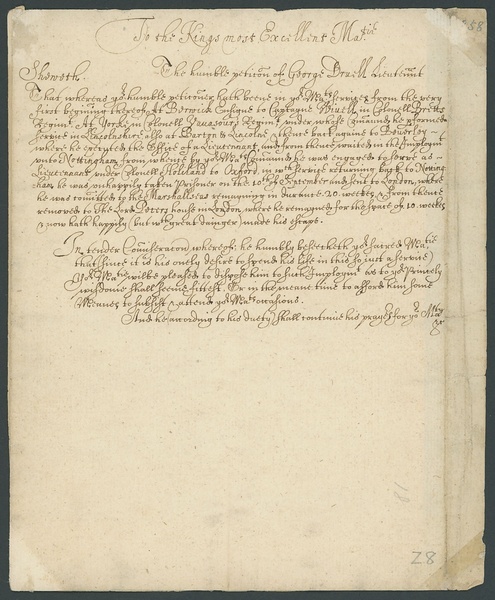 58
To the Kings most Excellent Ma:tie
Sheweth. The humble peticon of George Lieutennt
That whereas yor humble peticoner hath beene in yor Mats service from the very
first begining thereof, At Barwick Ensigne to Captayne in Colonell
Regimt, At Yorke in Colonell Vavasours Regimt, under whose Comaund he p'formed
service in Lincolneshire also at Barton & Lincolne & thence back againe to Beverley
where he executed the Office of a Lieuetennant, and from thence waited in the same Imploymt
unto Nottingham, from whence by yor Mats Comaund he was engaged to serve as
Lieuetennant under Colonell to Oxford, in wch service returning back to Notting
ham, he was unhappily taken Prisoner on the 10th of September and sent to London, where
he was comitted to the Marshallseas remayning in durance 20 weekes, & from thence
removed to the Lord Peters house in London, where he remayned for the space of 10 weekes
& now hath happily (but wth great daunger) made his escape.
In tender Consideracon whereof, he humbly beseecheth yor sacred Matie
that (since it is his onely desire to spend his life in this so just a service)
yor Matie wilbe pleased to dispose him to such Imploymt as to yor Princely
wisdome shall seeme fittest. Or in the meane time to afford him some
Meanes to subsist & attend yor Mats occasions.
And he according to his duety shall continue his prayers for yor Maty
&c
18
28